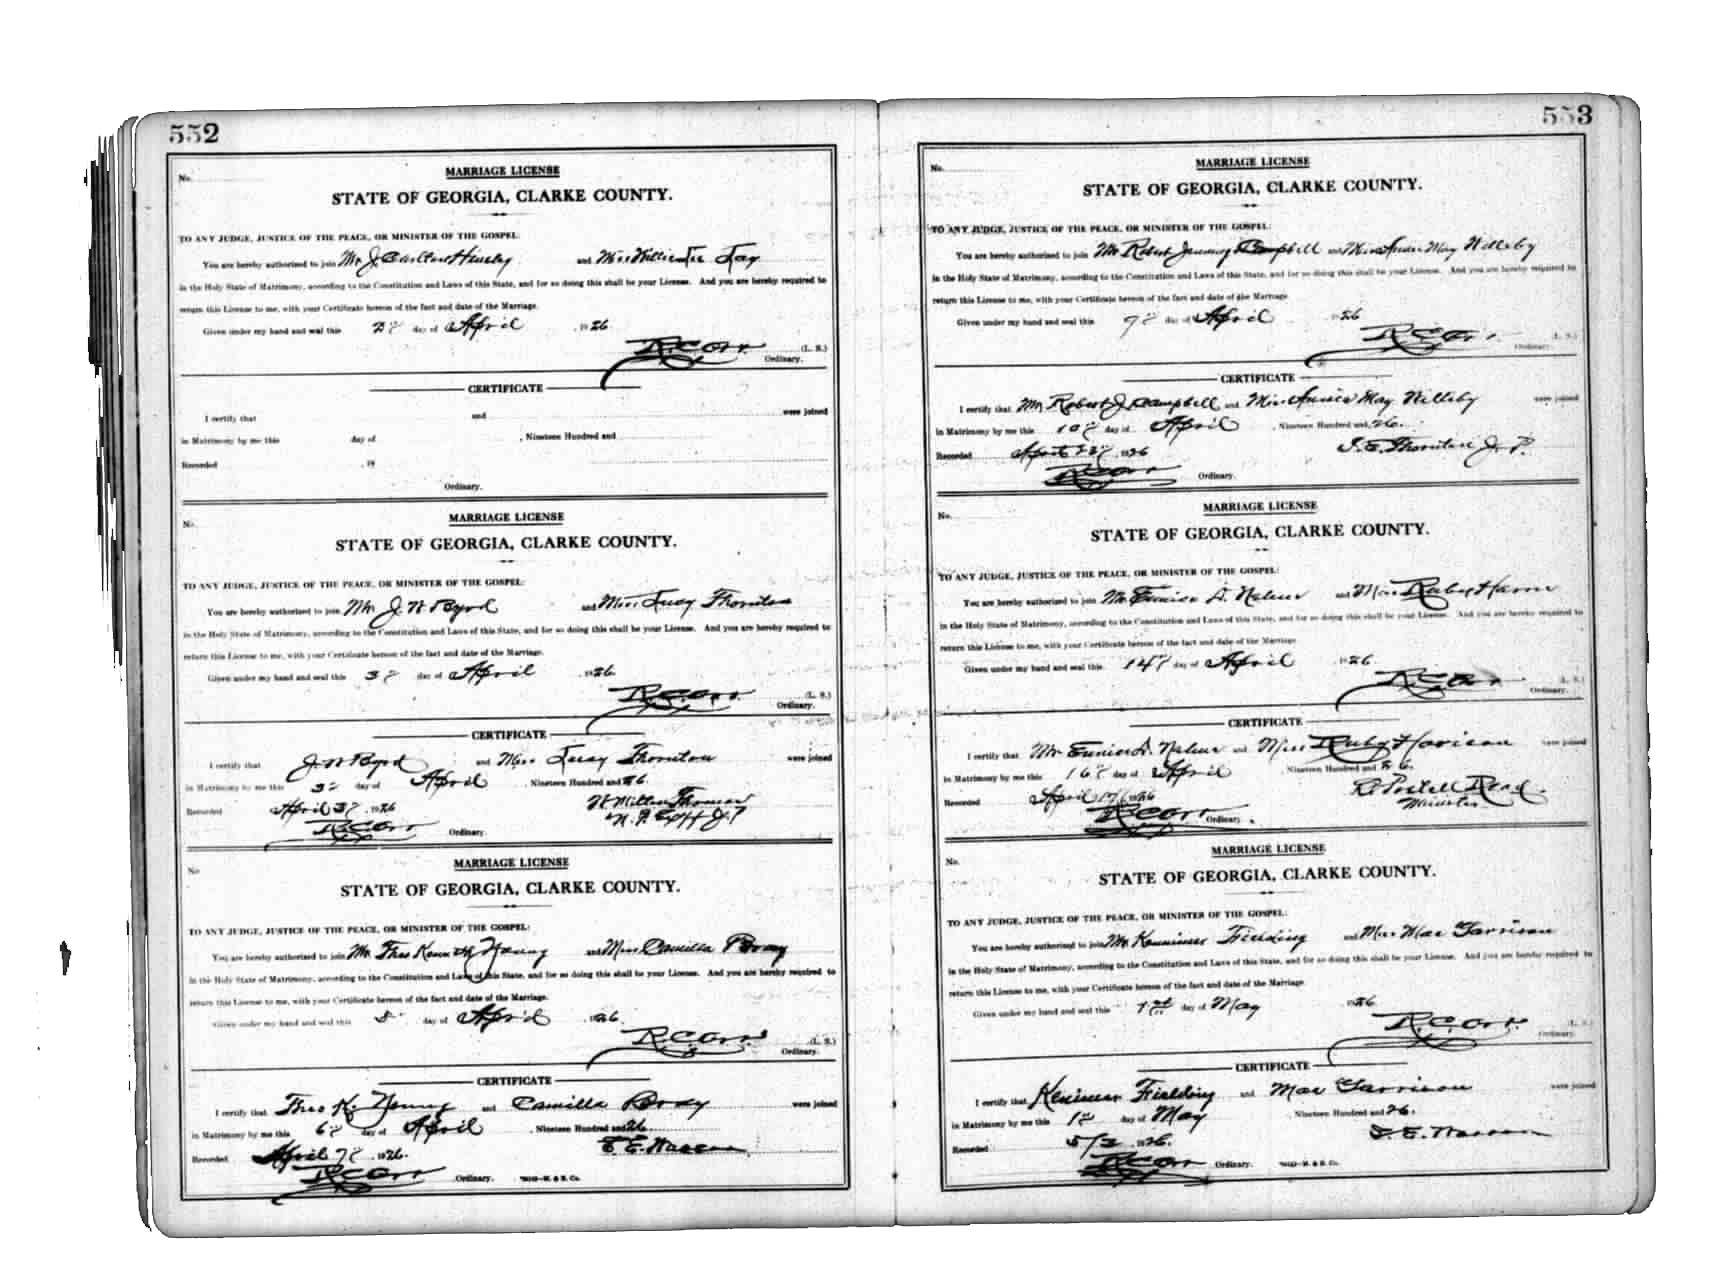 552
No.
MARRIAGE LICENSE
STATE OF GEORGIA, CLARKE COUNTY.
TO ANY JUDGE, JUSTICE OF THE PEACE, OR MINISTER OF THE GOSPEL:
You are hereby authorized to join Mr. J. Carlton and Miss Willie
in the Holy State of Matrimony, according to the Constitution and Laws of this State, and for so doing this shall be your License. And you are hereby required to
return this License to me, with your Certificate hereon of the fact and date of the Marriage.
Given under my hand and seal this day of April , 1926.
R. C. Orr (L. S.)
Ordinary.
CERTIFICATE
I certify that and were joined
in Matrimony by me this day of , Nineteen Hundred and
Recorded , 19
Ordinary.
No.
MARRIAGE LICENSE
STATE OF GEORGIA, CLARKE COUNTY.
TO ANY JUDGE, JUSTICE OF THE PEACE, OR MINISTER OF THE GOSPEL:
You are hereby authorized to join Mr. J. W Byrd and Miss Lucy Thornton
in the Holy State of Matrimony, according to the Constitution and Laws of this State, and for so doing this shall be your License. And you are hereby required to
return this License to me, with your Certificate hereon of the fact and date of the Marriage.
Given under my hand and seal this 3 day of April , 1926.
R. C. Orr (L. S.)
Ordinary.
CERTIFICATE
I certify that J. W Byrd and Miss Lucy Thornton were joined
in Matrimony by me this 3 day of April , Nineteen Hundred and 26.
Recorded April 3 , 1926 W Milton Thomas
R. C. Orr Ordinary. J. P.
No
MARRIAGE LICENSE
STATE OF GEORGIA, CLARKE COUNTY.
TO ANY JUDGE, JUSTICE OF THE PEACE, OR MINISTER OF THE GOSPEL:
You are hereby authorized to join Mr. Theo Kenneth Young and Miss Camilla Brody
in the Holy State of Matrimony, according to the Constitution and Laws of this State, and for so doing this shall be your License. And you are hereby required to
return this License to me, with your Certificate hereon of the fact and date of the Marriage.
Given under my hand and seal this day of April , 1926.
R. C. Orr (L. S.)
Ordinary.
CERTIFICATE
I certify that Theo K. Young and Camilla Brody were joined
in Matrimony by me this 6 day of April , Nineteen Hundred and 26
Recorded April 7 , 1926. E. E. Warren
R. C. Orr Ordinary.
553
No.
MARRIAGE LICENSE
STATE OF GEORGIA, CLARKE COUNTY.
TO ANY JUDGE, JUSTICE OF THE PEACE, OR MINISTER OF THE GOSPEL:
You are hereby authorized to join Mr. Robert Campbell and Miss May Willeby
in the Holy State of Matrimony, according to the Constitution and Laws of this State, and for so doing this shall be your License. And you are hereby required to
return this License to me, with your Certificate hereon of the fact and date of the Marriage.
Given under my hand and seal this 9 day of April 1926
R. C. Orr (L. S.)
Ordinary.
CERTIFICATE
I certify that Mr. Robert J. Campbell and Miss Annie May Willeby were joined
in Matrimony by me this 10 day of April , Nineteen Hundred and 26.
Recorded April 1926 Thornton J. P.
R. C. Orr Ordinary.
No.
MARRIAGE LICENSE
STATE OF GEORGIA, CLARKE COUNTY.
TO ANY JUDGE, JUSTICE OF THE PEACE, OR MINISTER OF THE GOSPEL:
You are hereby authorized to join Mr. Eunice and Miss Ruby
in the Holy State of Matrimony, according to the Constitution and Laws of this State, and for so doing this shall be your License. And you are hereby required to
return this License to me, with your Certificate hereon of the fact and date of the Marriage.
Given under my hand and seal this 14 day of April 1926.
R. C. Orr (L. S.)
Ordinary.
CERTIFICATE
I certify that Mr. Eunice and Miss Ruby were joined
in Matrimony by me this 16 day of April , Nineteen Hundred and 26.
Recorded April 17 1926 R. Postell Read
R. C. Orr Ordinary. Minister
No.
MARRIAGE LICENSE
STATE OF GEORGIA, CLARKE COUNTY.
TO ANY JUDGE, JUSTICE OF THE PEACE, OR MINISTER OF THE GOSPEL:
You are hereby authorized to join Mr. Fielding and Miss Mae Garrison
in the Holy State of Matrimony, according to the Constitution and Laws of this State, and for so doing this shall be your License. And you are hereby required to
return this License to me, with your Certificate hereon of the fact and date of the Marriage.
Given under my hand and seal this 1st day of May 1926
R. C. Orr. (L. S.)
Ordinary.
CERTIFICATE
I certify that Fielding and Mae Garrison were joined
in Matrimony by me this 1 day of May , Nineteen Hundred and 26.
Recorded 5/2 , 1926. E. Warren
R. C. Orr Ordinary.